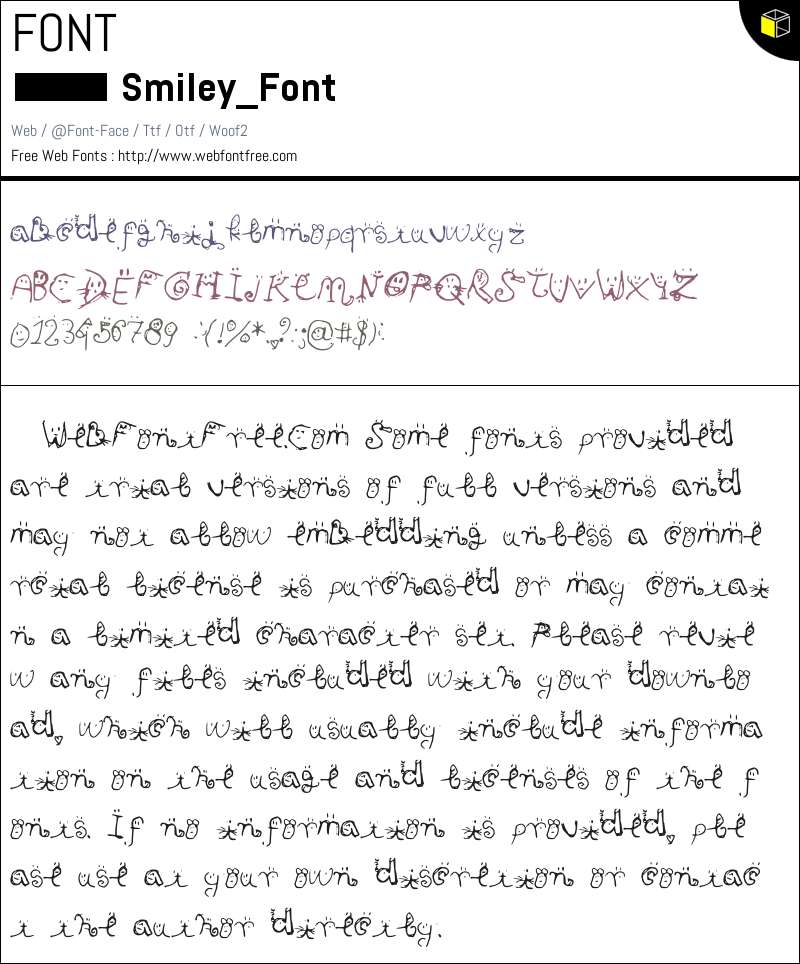 FONT
Smiley_Font
Web / @Font-Face / Ttf / Otf / Woof2
Free Web Fonts : http://www.webfontfree.com
abcdefghijklmnopqrstuvwxyz
ABCDEFGHIJKLMNOPQRSTUVWXYZ
0123456789 :(!%*,?:;@#$):
WebFontFree.Com Some fonts provided
are trial versions of full versions and
may not allow embedding unless a comme
rcial license is purchased or may contai
n a limited character set. Please revie
w any files included with your downlo
ad, which will usually include informa
tion on the usage and licenses of the f
onts. If no information is provided, ple
ase use at your own discretion or contac
t the author directly.